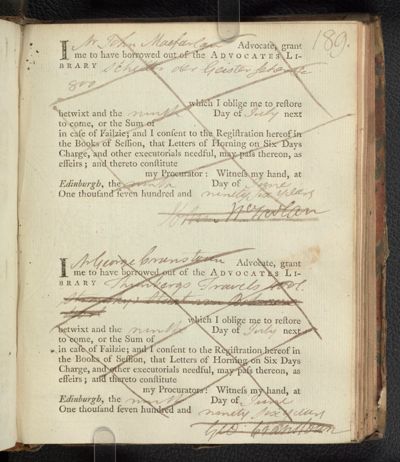 189.
I Mr John Macfarlan Advocate, grant
me to have borrowed out of the ADVOCATES LI-
BRARY Schiller der Geisterseher
8vo
which I oblige me to restore
betwixt and the ninth Day of July next
to come, or the Sum of
in case of Failzie; and I consent to the Registration hereof in
the Books of Session, that Letters of Horning on Six Days
Charge, and other executorials needful, may pass thereon, as
effeirs; and thereto constitute
my Procurator: Witness my hand, at
Edinburgh, the ninth Day of June
One thousand seven hundred and ninety six years
I Mr George Cranstoun Advocate, grant
me to have borrowed out of the ADVOCATES LI-
BRARY Thunbergs Travels
which I oblige me to restore
betwixt and the ninth Day of July next
to come, or the Sum of
in case of Failzie; and I consent to the Registration hereof in
the Books of Session, that Letters of Horning on Six Days
Charge, and other executorials needful, may pass thereon, as
effeirs; and thereto constitute
my Procurator: Witness my hand, at
Edinburgh, the ninth Day of June
One thousand seven hundred and ninety six years
Geo. Cranstoun